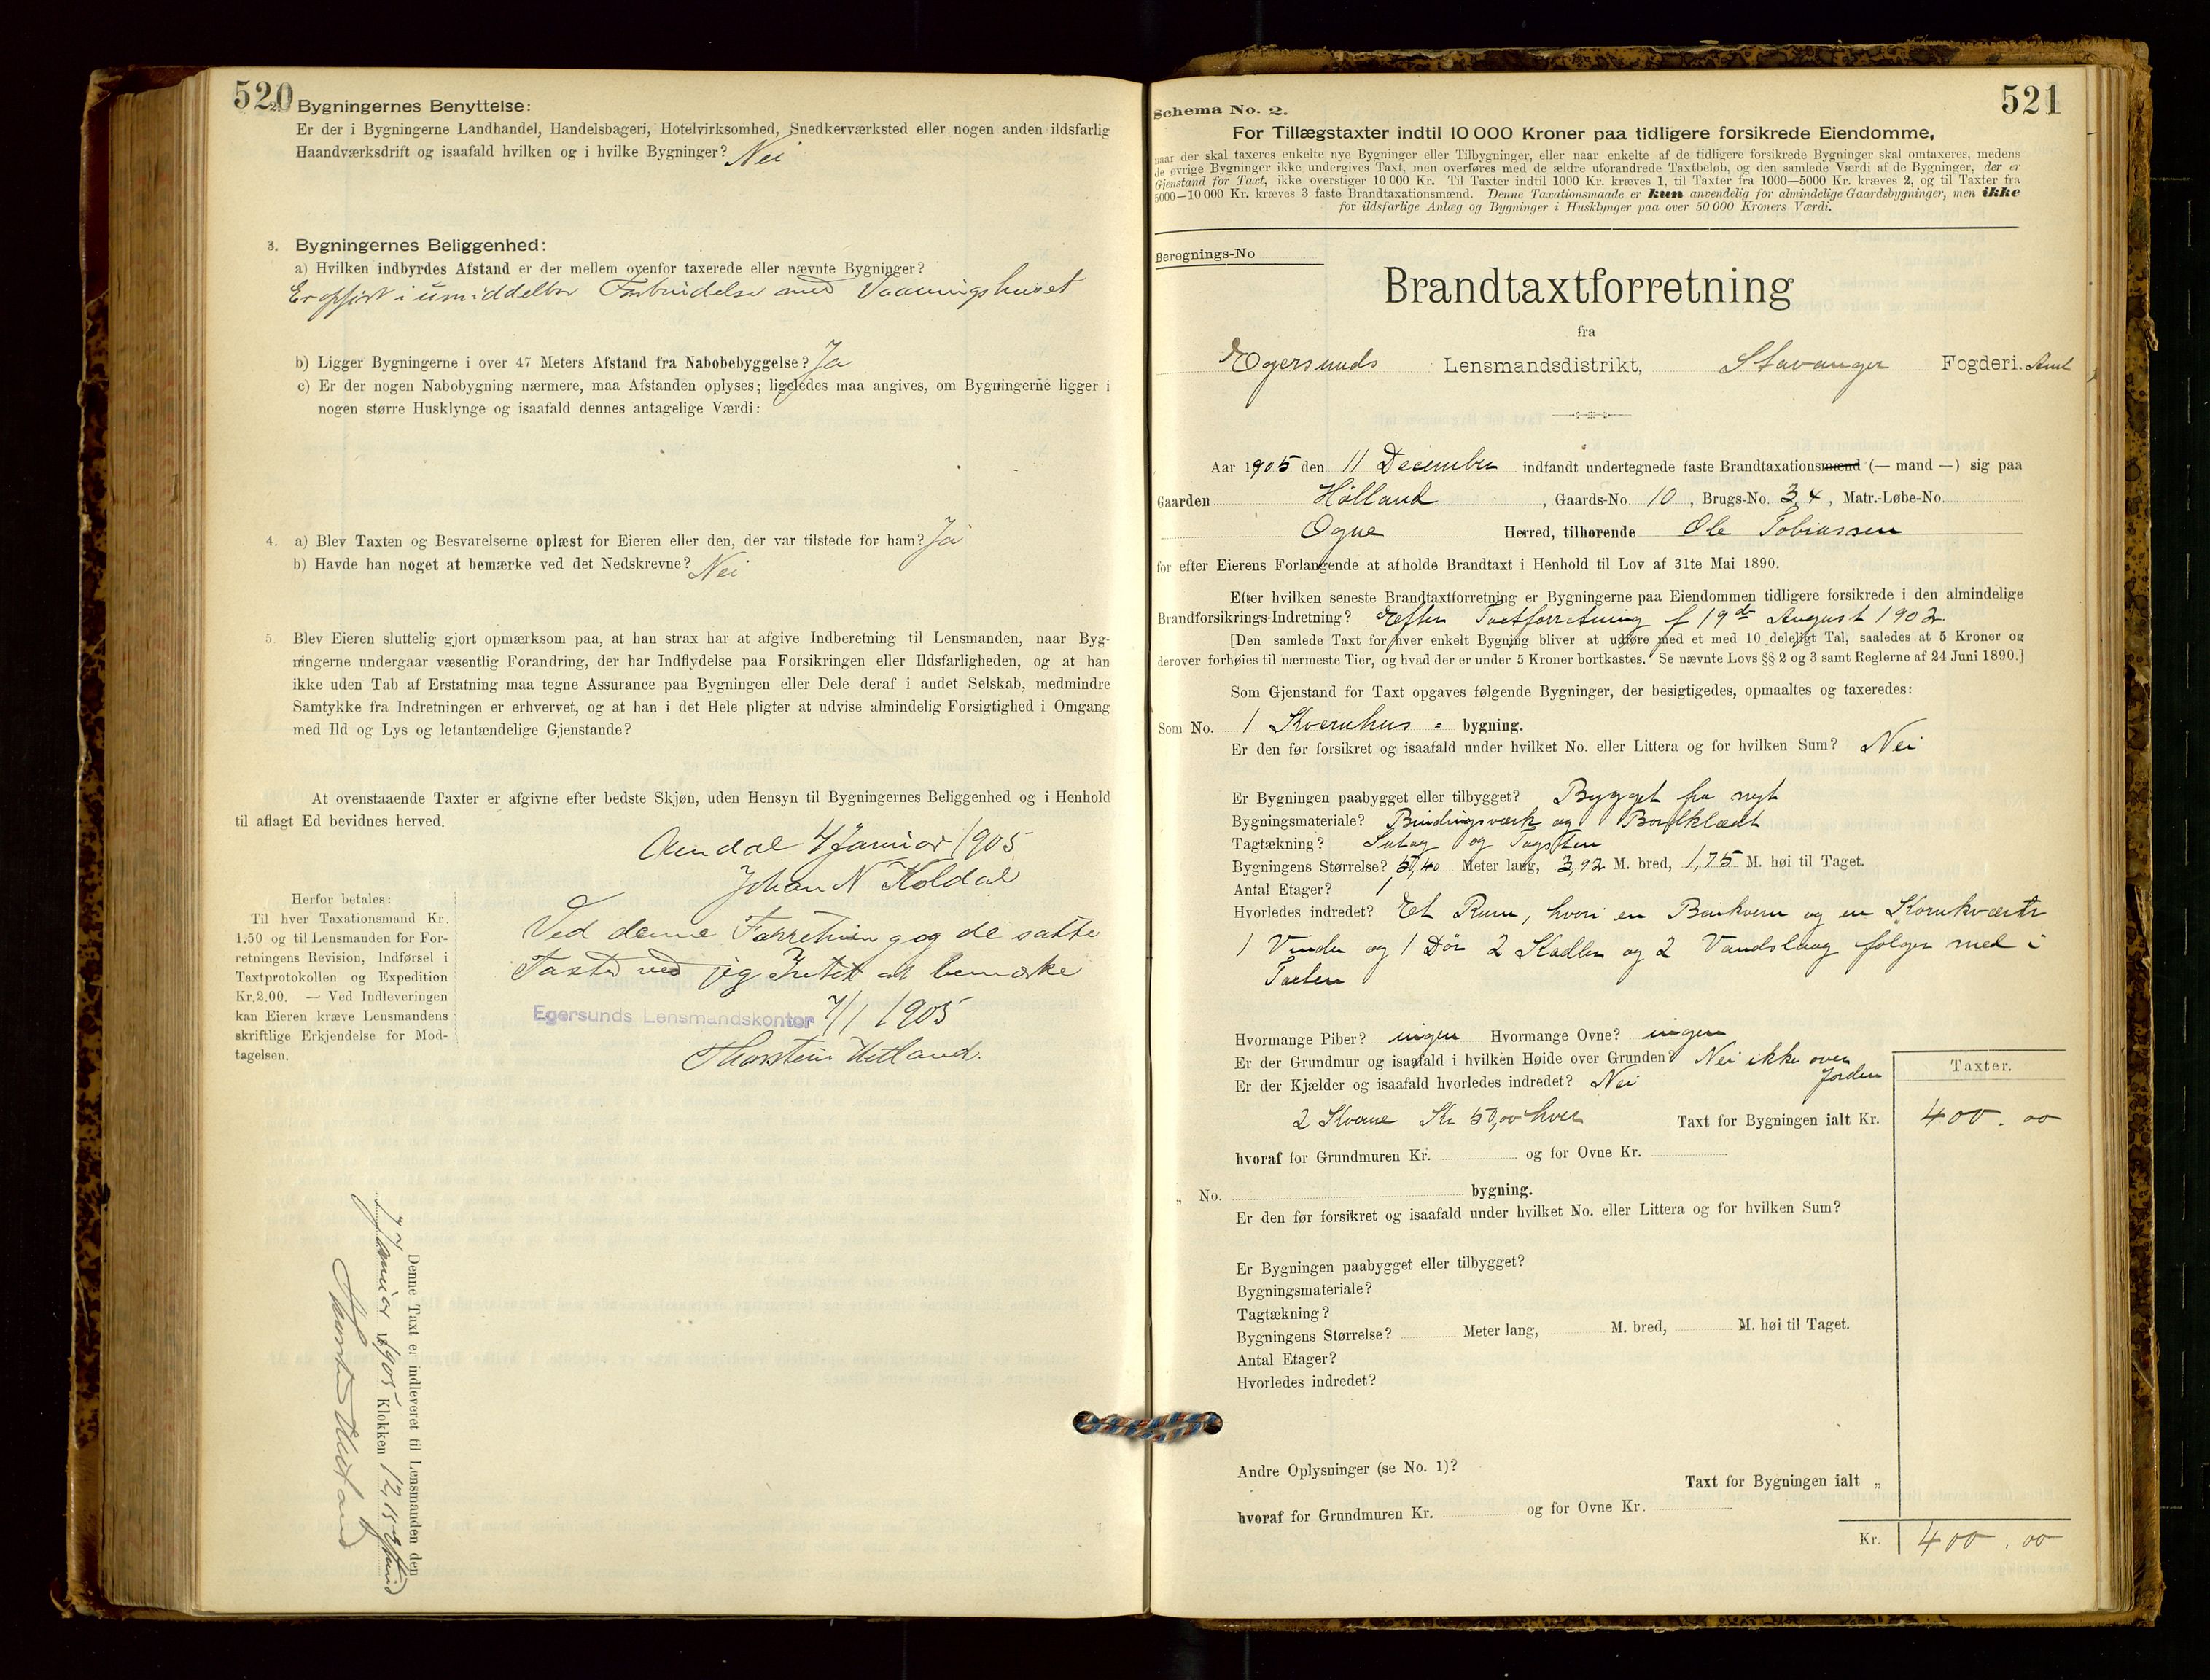 520
2. Bygningernes Benyttelse:
Er der i Bygningerne Landhandel, Handelsbageri, Hotelvirksomhed, Snedkerværksted eller nogen anden ildsfarlig
Haandværksdrift og isaafald hvilken og i hvilke Bygninger? Nei
3. Bygningernes Beliggenhed:
a) Hvilken indbyrdes Afstand er der mellem ovenfor taxerede eller nævnte Bygninger?
Er opført i umiddelbar Forbindelse med Vaaningshuset
b) Ligger Bygningerne i over 47 Meters Afstand fra Nabobebyggelse? Ja
c) Er der nogen Nabobygning nærmere, maa Afstanden oplyses; ligeledes maa angives, om Bygningerne ligger i
nogen større Husklynge og isaafald dennes antagelige Værdi:
4. a) Blev Taxten og Besvarelserne oplæst for Eieren eller den, der var tilstede for ham? Ja
b) Havde han noget at bemærke ved det Nedskrevne? Nei
5. Blev Eieren sluttelig gjort opmærksom paa, at han strax har at afgive Indberetning til Lensmanden, naar Byg-
ningerne undergaar væsentlig Forandring, der har Indflydelse paa Forsikringen eller Ildsfarligheden, og at han
ikke uden Tab af Erstatning maa tegne Assurance paa Bygningen eller Dele deraf i andet Selskab, medmindre
Samtykke fra Indretningen er erhvervet, og at han i det Hele pligter at udvise almindelig Forsigtighed i Omgang
med Ild og Lys og letantændelige Gjenstande?
At ovenstaaende Taxter er afgivne efter bedste Skjøn, uden Hensyn til Bygningernes Beliggenhed og i Henhold
til aflagt Ed bevidnes herved.
4 Januar 1905
Johan N Koldal
Herfor betales:
Til hver Taxationsmand Kr.
1.50 og til Lensmanden for For-
retningens Revision, Indførsel i
Taxtprotokollen og Expedition
Kr. 2.00. — Ved Indleveringen
kan Eieren kræve Lensmandens
skriftlige Erkjendelse for Mod-
tagelsen.
Ved denne Forretning og de satte
Taxter ved jeg Intet at bemærke
Egersunds Lensmandskontor 7/1 1905
Thorstein Hetland.
Denne Taxt er indleveret til Lensmanden den
7 Januar 1905 Klokken 12,15
Thorstein Hetland
521
Schema No. 2.
For Tillægstaxter indtil 10 000 Kroner paa tidligere forsikrede Eiendomme,
naar der skal taxeres enkelte nye Bygninger eller Tilbygninger, eller naar enkelte af de tidligere forsikrede Bygninger skal omtaxeres, medens
de øvrige Bygninger ikke undergives Taxt, men overføres med de ældre uforandrede Taxtbeløb, og den samlede Værdi af de Bygninger, der er
Gjenstand for Taxt, ikke overstiger 10 000 Kr. Til Taxter indtil 1000 Kr. kræves 1, til Taxter fra 1000—5000 Kr. kræves 2, og til Taxter fra
5000—10 000 Kr. kræves 3 faste Brandtaxationsmænd. Denne Taxationsmaade er kun anvendelig for almindelige Gaardsbygninger, men ikke
for ildsfarlige Anlæg og Bygninger i Husklynger paa over 50 000 Kroners Værdi.
Beregnings-No
Brandtaxtforretning
fra
Egersunds Lensmandsdistrikt, Stavanger Fogderi. Amt
Aar 1905 den 11 December indfandt undertegnede faste Brandtaxationsmænd (— mand —) sig paa
Gaarden Hölland, Gaards-No. 10, Brugs-No. 3,4, Matr.-Løbe-No.
Ogne Herred, tilhørende Ole Tobiassen
for efter Eierens Forlangende at afholde Brandtaxt i Henhold til Lov af 31te Mai 1890.
Efter hvilken seneste Brandtaxtforretning er Bygningerne paa Eiendommen tidligere forsikrede i den almindelige
Brandforsikrings-Indretning? Efter Taxtforretning af 19de August 1902
[Den samlede Taxt for hver enkelt Bygning bliver at udføre med et med 10 deleligt Tal, saaledes at 5 Kroner og
derover forhøies til nærmeste Tier, og hvad der er under 5 Kroner bortkastes. Se nævnte Lovs §§ 2 og 3 samt Reglerne af 24 Juni 1890.]
Som Gjenstand for Taxt opgaves følgende Bygninger, der besigtigedes, opmaaltes og taxeredes:
Som No. 1 Kvernhus = bygning.
Er den før forsikret og isaafald under hvilket No. eller Littera og for hvilken Sum? Nei
Er Bygningen paabygget eller tilbygget? Bygget fra nyt
Bygningsmateriale? Bindingsværk og Bordklædt
Tagtækning? Sutag og Tagsten
Bygningens Størrelse? 5,40 Meter lang, 3,92 M. bred, 1,75 M. høi til Taget.
Antal Etager? 1
Hvorledes indredet? Et Rum, hvori en Benkvern og en
1 Vindu og 1 Dör 2 Kadler og 2 Vandslaug følger med i
Taxten
Hvormange Piber? ingen Hvormange Ovne? ingen
Er der Grundmur og isaafald i hvilken Høide over Grunden? Nei ikke over
Jorden
Er der Kjælder og isaafald hvorledes indredet? Nei
Taxter.
2 Kverne Kr 50,00 hver Taxt for Bygningen ialt Kr. 400.00
hvoraf for Grundmuren Kr. og for Ovne Kr.
„ No. bygning.
Er den før forsikret og isaafald under hvilket No. eller Littera og for hvilken Sum?
Er Bygningen paabygget eller tilbygget?
Bygningsmateriale?
Tagtækning?
Bygningens Størrelse? Meter lang, M. bred, M. høi til Taget.
Antal Etager?
Hvorledes indredet?
Andre Oplysninger (se No. 1)?
Taxt for Bygningen ialt „
hvoraf for Grundmuren Kr. og for Ovne Kr.
Kr. 400.00